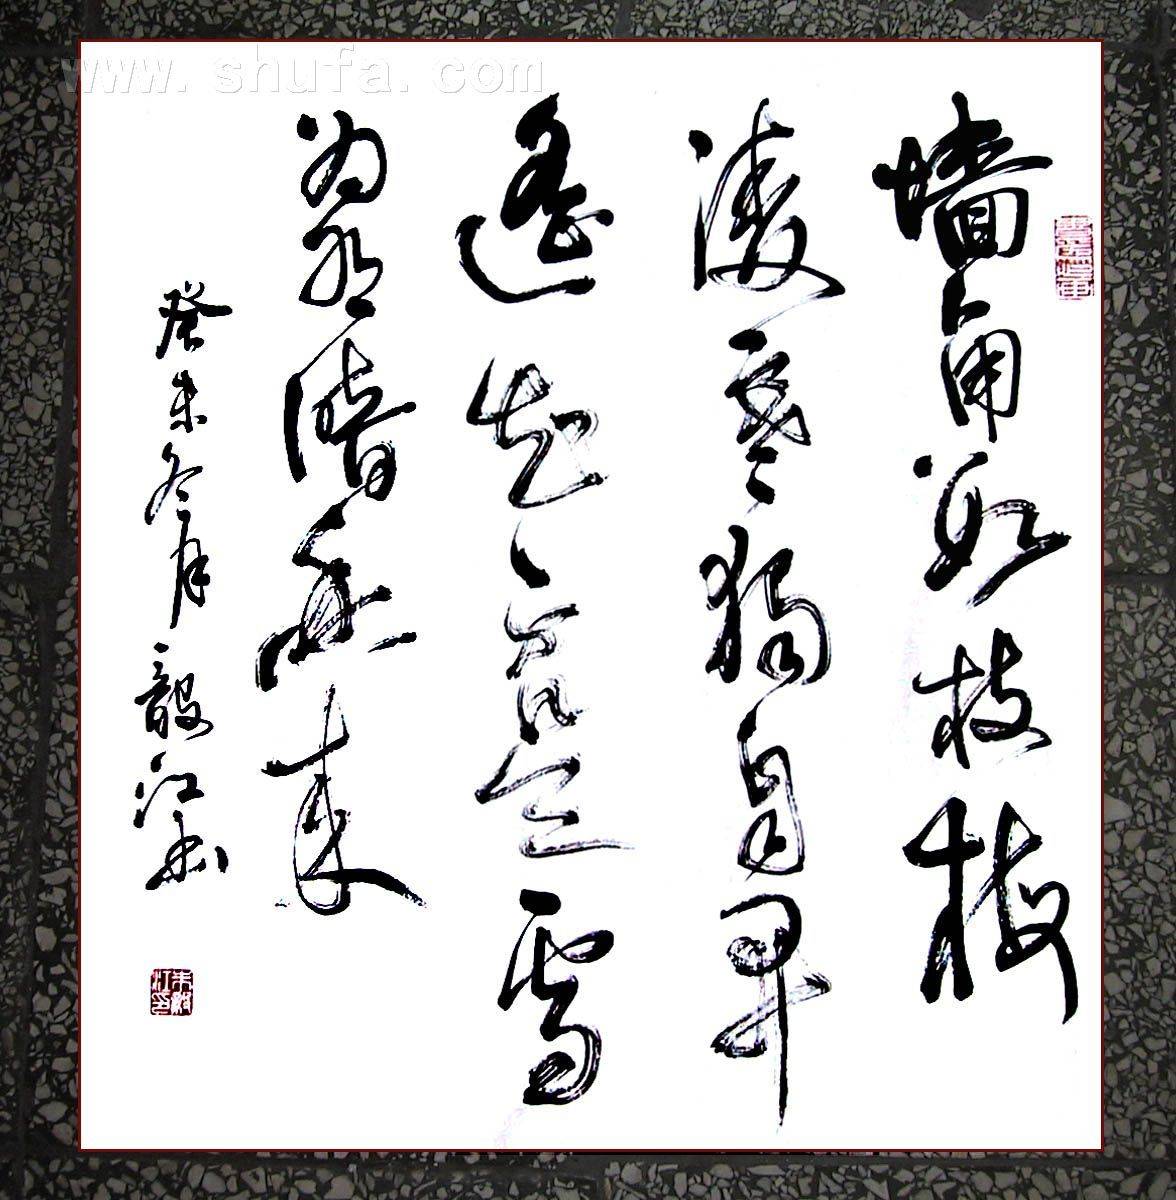 www.shufa.com
墙角数枝梅
凌寒独自开
遥知不是雪
为有暗香来
癸未冬月毅江书